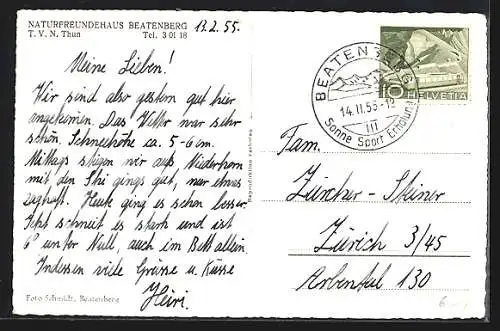 NATURFREUNDEHAUS BEATENBERG
T. V. N. Thun Tel. 3 01 18
13.2.55.
Meine Lieben!
Wir sind also gestern gut hier
angekommen. Das Wetter war sehr
schön. Schneehöhe ca. 5-6 cm.
Mittags stiegen wir aufs Niederhorn
mit den Ski gings gut, nur etwas
zaghaft. Heute ging es schon besser.
Jetzt schneit es stark und ist
6° unter Null, auch im Bett allein.
Indessen viele Grüsse u Küsse
Heiri.
Foto Schmidt, Beatenberg
BEATENBERG
14. II. 55
III
Sonne Sport Erholung
10 HELVETIA
Fam.
Zürcher-Steiner
Zürich 3/45
Arbental 130